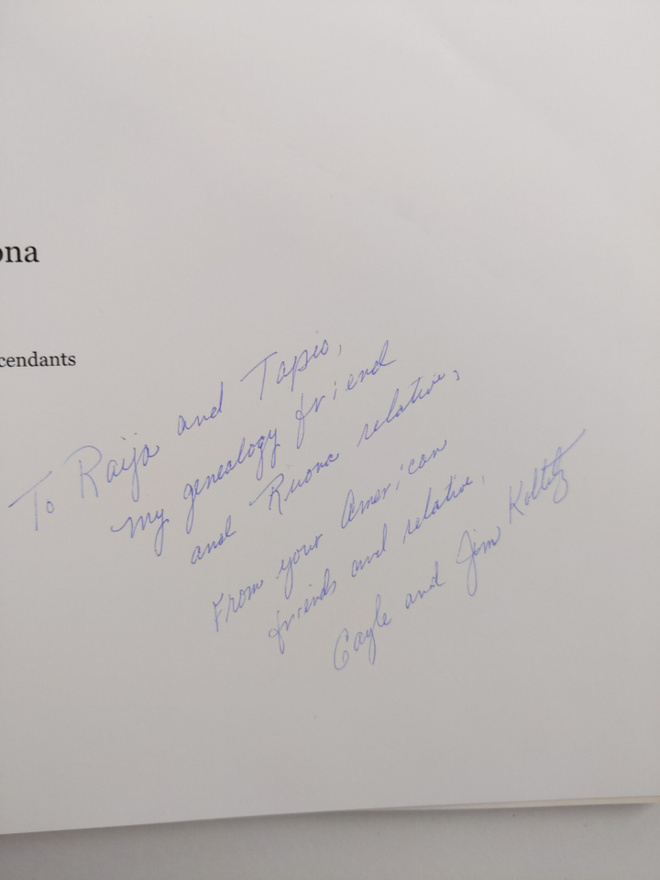 ona
cendants
To Raija and Tapio,
my genealogy friend
and Ruona relative,
From your American
friends and relative,
Gayle and Jim